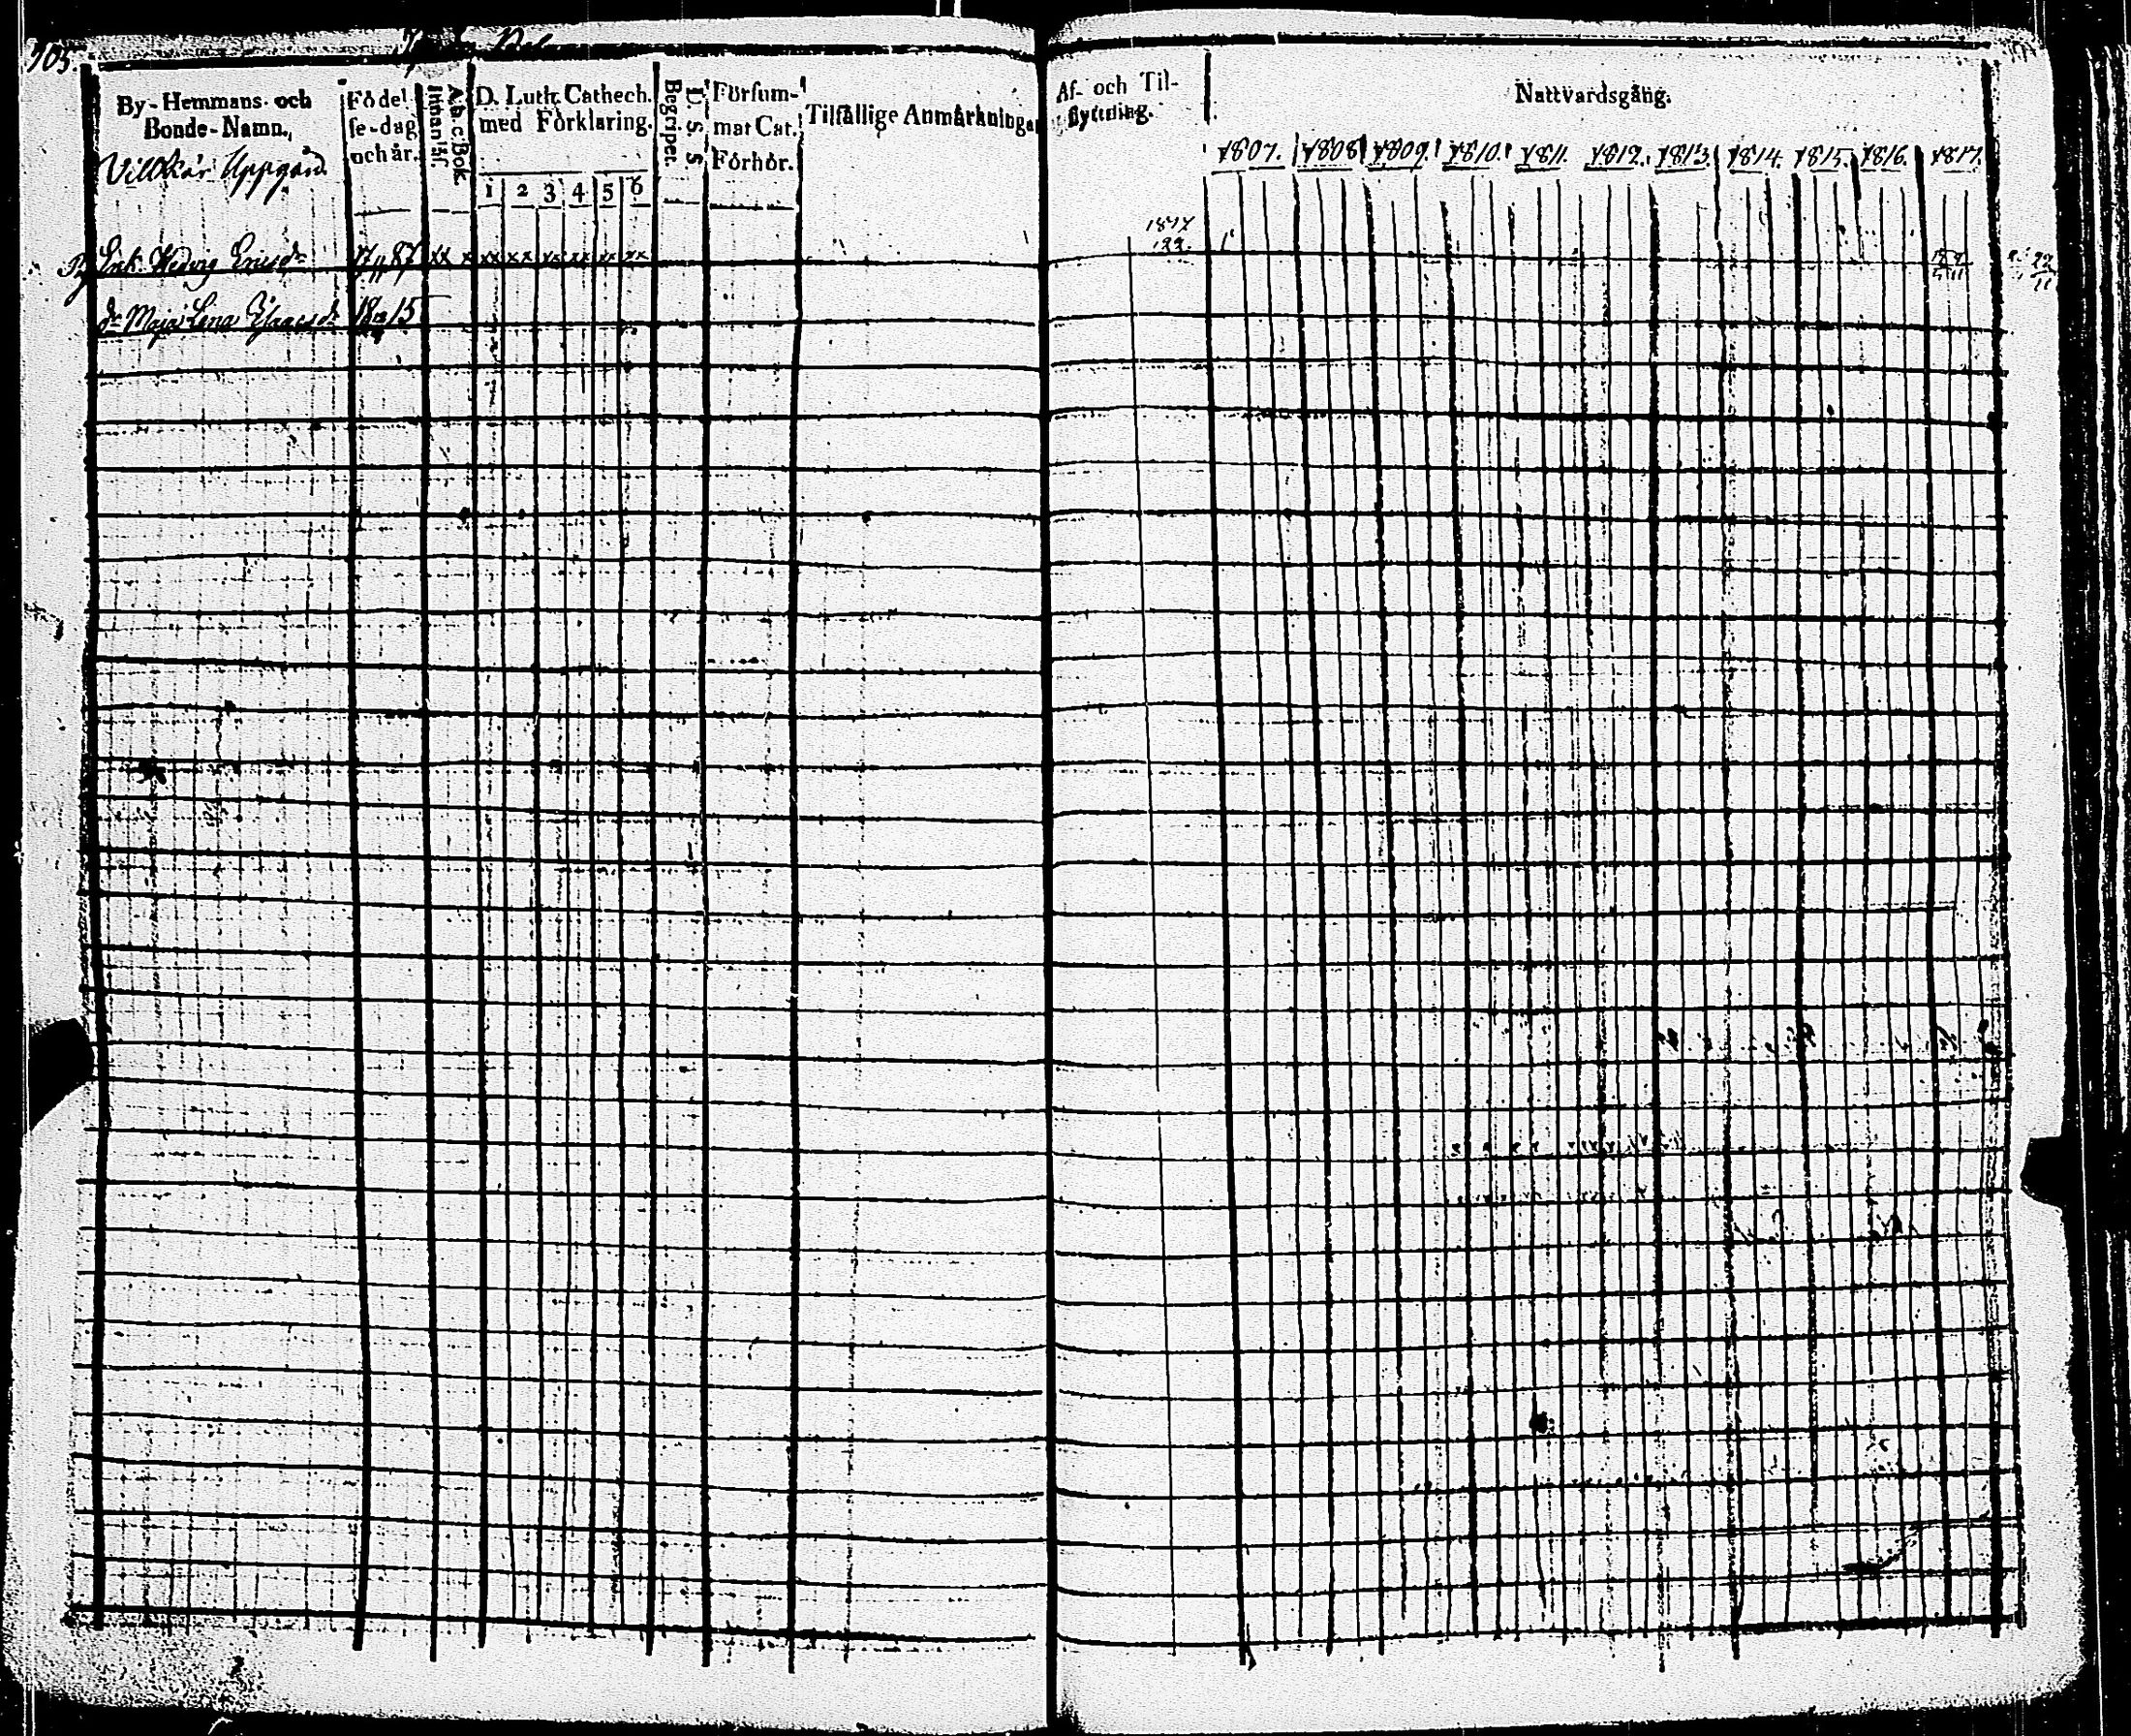 705.
By-Hemmans- och
Bonde-Namn.
Födel
se-dag
och år.
A.b.c.Bok.
Innanläs.
D. Luth. Cathech.
med Förklaring.
1 2 3 4 5 6
Begripet.
D. S. S.
Försum-
mat Cat.
Förhör.
Tilfällige Anmärkningar
Villkär Uppgård
Enk. Hedvig Ericsdr 17 11 87 xx x xx xx xx xx xx xx
dr Maja Lena 18 15
Af- och Til-
flyttning.
Nattvardsgång.
1807. 1808 1809. 1810. 1811. 1812. 1813. 1814. 1815. 1816. 1817.
122.
22
11